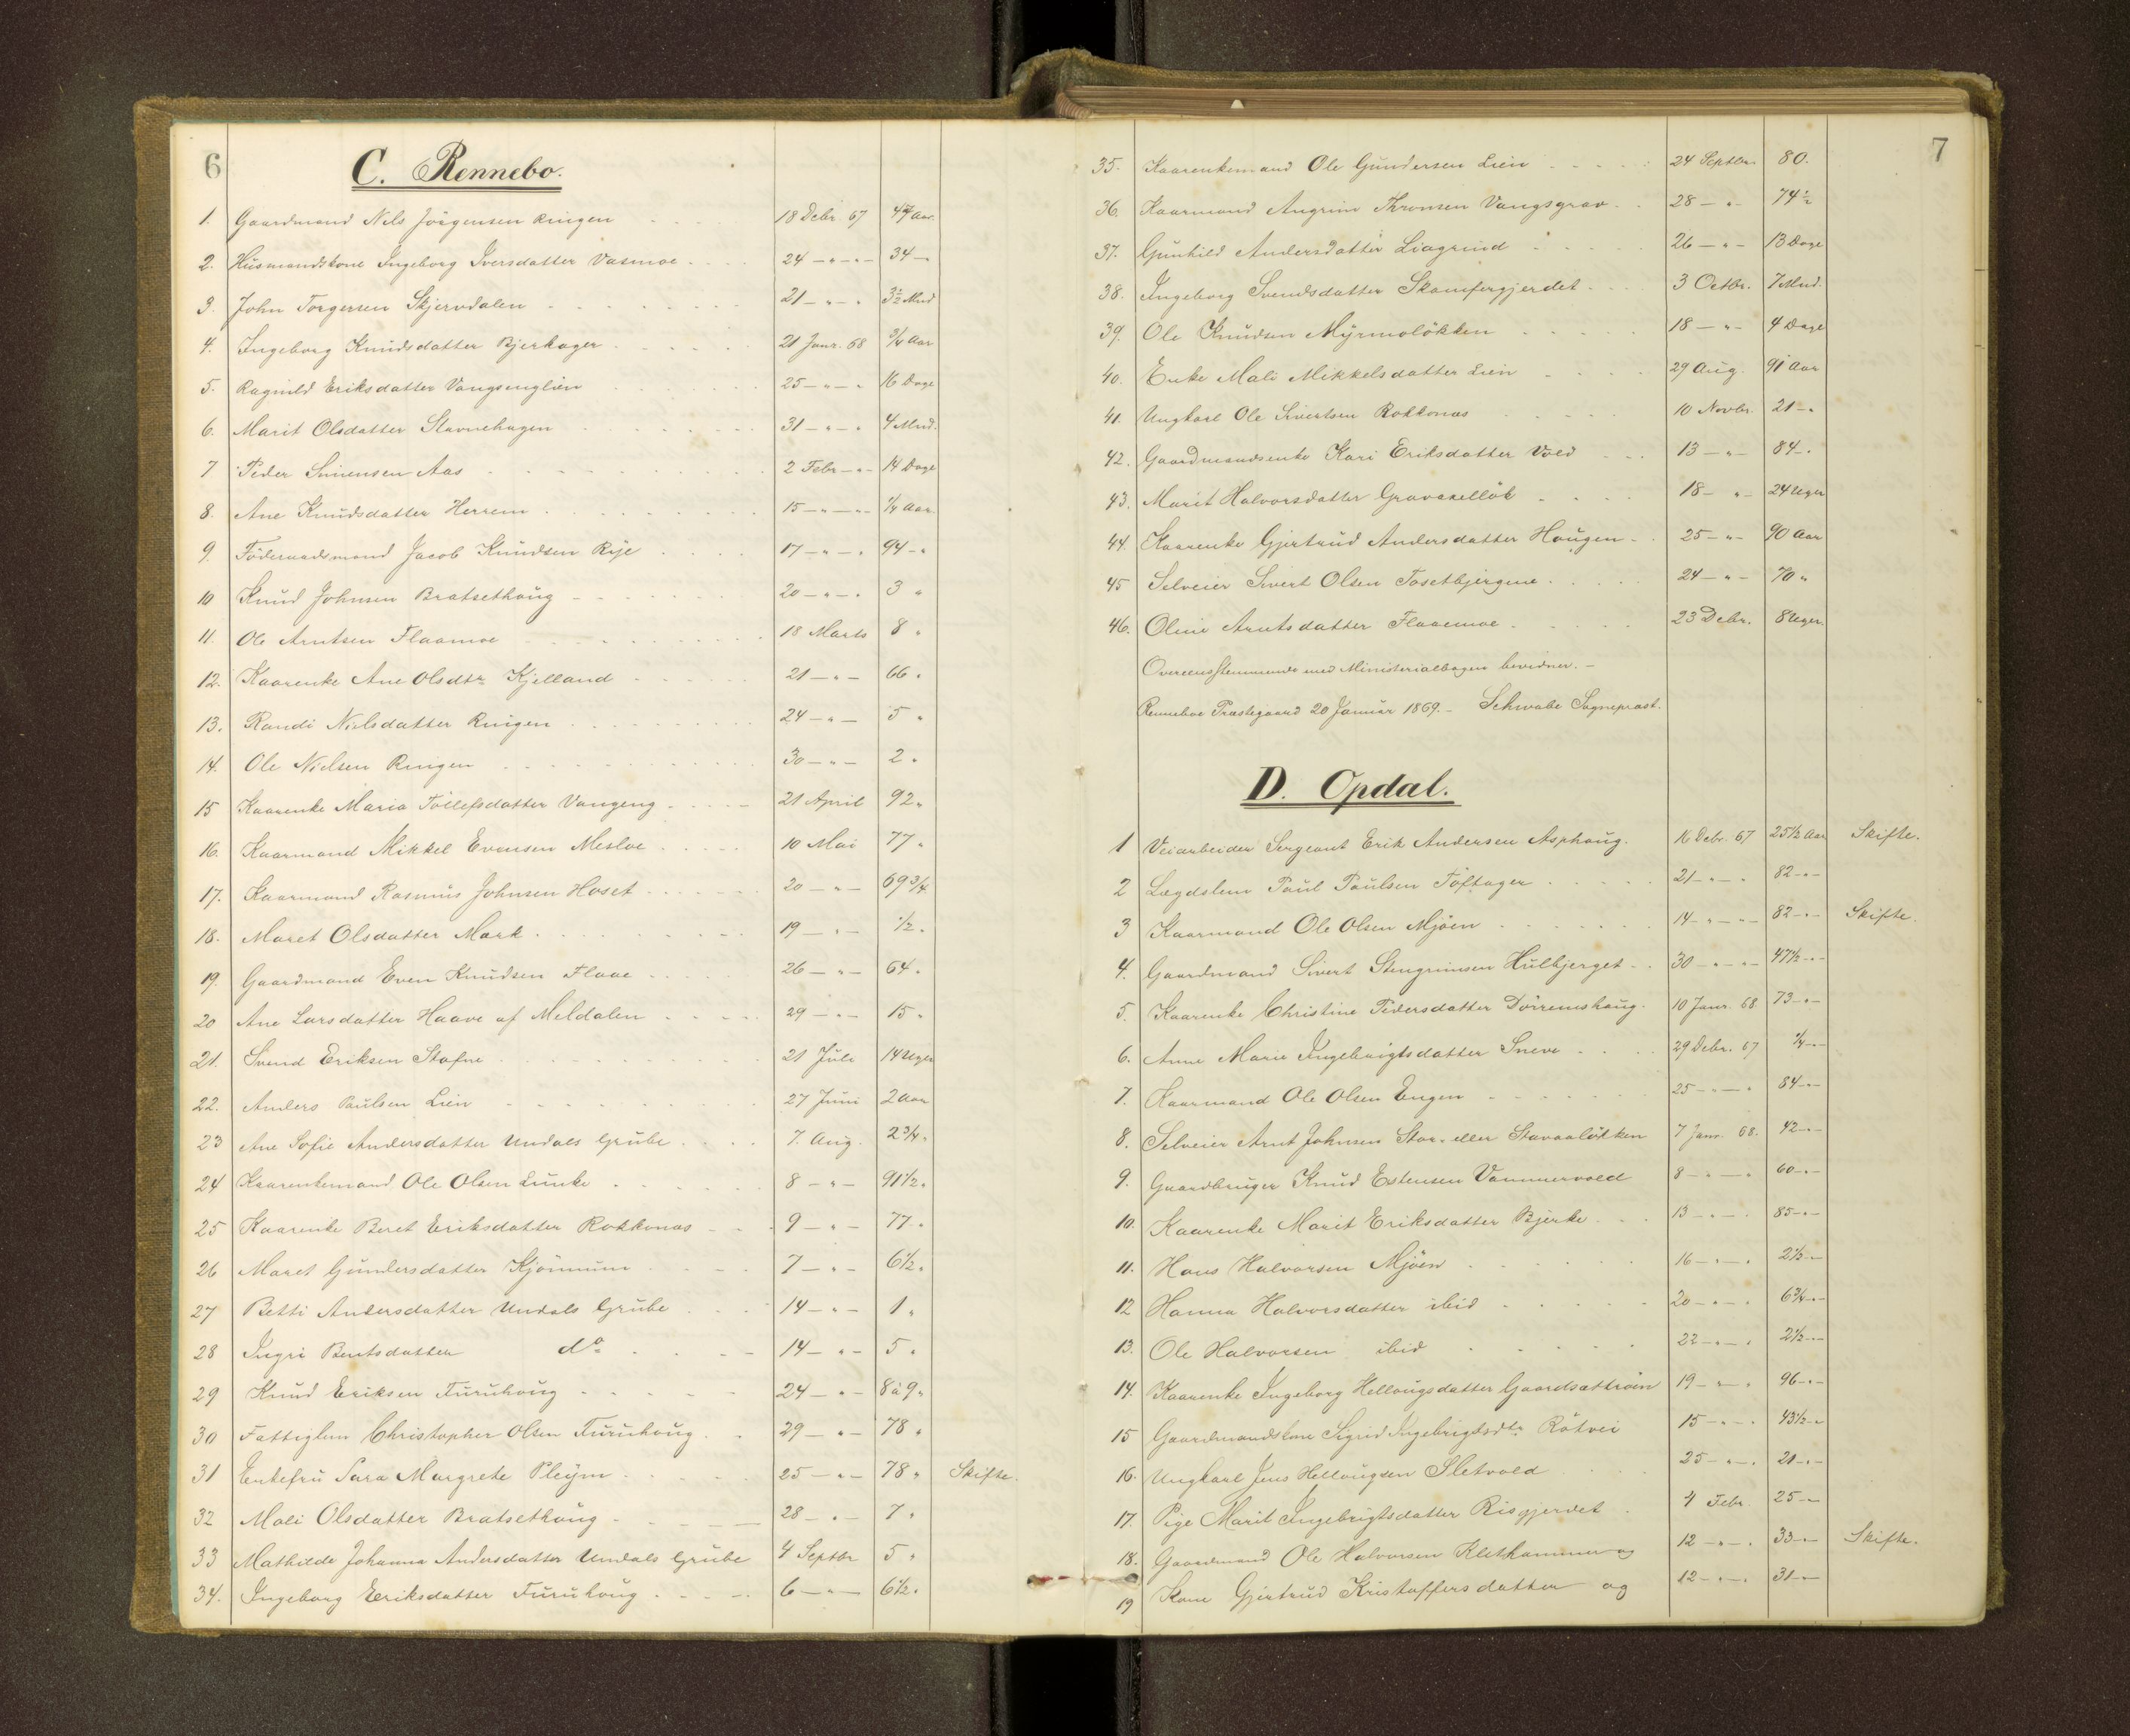 6
C. Rennebo.
1. Gaardmand Nils Jörgensen Ringen 18 Debr. 67 47 Aar.
2. Husmandskone Ingeborg Iversdatter Vasmoe 24 — " — " — 34 —
3. John Torgersen Skjervdalen 21 — " — " 3½ Mnd
4. Ingeborg Knudsdatter Bjerkager 21 Janr. 68 3/4 Aar
5. Ragnild Eriksdatter Vangsenglien 25 — " — " 16 Dage
6. Marit Olsdatter Stavnehagen 31 — " — " 4 Mnd.
7 Peder Simensen Aas 2 Febr — " — 14 Dage
8. Ane Knudsdatter Herrem 15 — " — " — 1/4 Aar.
9. Föderaadsmand Jacob Knudsen Rije 17 — " — " 94 — "
10 Knud Johnsen Bratsethoug 20 — " — " 3 "
11. Ole Arntsen Flaamoe 18 Marts 8 "
12. Kaarenke Ane Olsdtr. Kjelland 21 — " — 66 "
13. Randi Nielsdatter Ringen 24 — " — 5 "
14. Ole Nielsen Ringen 30 — " — 2 "
15 Kaarenke Maria Tollefsdatter Vangeng 21 April 92 "
16. Kaarmand Mikkel Evensen Mesloe 10 Mai 77 "
17. Kaarmand Rasmus Johnsen Hoset 20 — " — 69 3/4
18. Maret Olsdatter Mork 19 — " — 1/2 "
19. Gaardmand Even Knudsen Flaae 26 — " — 64 "
20 Ane Larsdatter Haave af Meldalen 29 — " — 15 "
21. Svend Eriksen Stafne 21 Juli 14 Uger
22. Anders Paulsen Lien 27 Juni 2 Aar
23 Ane Sofie Andersdatter Undals Grube 7. Aug. 2 3/4 "
24 Kaarenkemand Ole Olsen Lunke 8 — " — 91 1/2 "
25 Kaarenke Beret Eriksdatter Rokkonas 9 — " — 77 "
26 Maret Gundersdatter Kjönnum 7 — " — 6 1/2 "
27 Betti Andersdatter Undals Grube 14 — " — 1 "
28 Ingri Bentsdatter do. 14 — " — 5 "
29 Knud Eriksen Furuhoug 24 — " — 8 à 9 "
30 Fattiglem Christopher Olsen Furuhoug 29 — " — 78 "
31 Enkefru Sara Margrete Pleym 25 — " — 78 " Skifte.
32 Mali Olsdatter Bratsethoug 28 — " — 7 "
33 Mathilde Johanna Andersdatter Undals Grube 4 Septbr 5 "
34. Ingeborg Eriksdatter Furuhoug 6 — " — 6 1/2 "
7
35. Kaarenkemand Ole Gundersen Lien 24 Septbr. 80.
36. Kaarmand Angrim Thronsen Vangsgrav 28 — " — 74 ½
37. Gunhild Andersdatter Liagrind 26 — " — 13 Dage
38. Ingeborg Svendsdatter Skamfergjerdet 3 Octbr. 7 Mnd.
39. Ole Knudsen Myrmoløkken 18 — " — 4 Dage
40. Enke Mali Mikkelsdatter Lien 29 Aug. 91 Aar
41. Ungkarl Ole Sivertsen Rokkonas 10 Novbr. 21 — "
42. Gaardmandsenke Kari Eriksdatter Vold 13 — " — 84 — "
43. Marit Halvorsdatter Gravaselløk 18 — " — 24 Uger
44. Kaarenke Gjertrud Andersdatter Haugen 25 — " — 90 Aar
45 Selveier Sivert Olsen Tosetbjergene 24 — " — 70 "
46. Oline Arntsdatter Flaaemoe 23 Debr. 8 Uger.
Overeensstemmende med Ministerialbogen bevidner. —
Renneboe Præstegaard 20 Januar 1869. — Schwabe Sognepræst.
D. Opdal.
1 Veiarbeider Sergeant Erik Andersen Asphoug. 16 Debr. 67 25 1/2 Aar Skifte.
2 Lægdslem Paul Paulsen Toftager 21 — " — " 82 — " —
3 Kaarmand Ole Olsen Mjöen 14 — " — " — 82 — " — Skifte.
4. Gaardmand Sivert Stengrimsen Hulbjerget 30 — " — " — 47 1/2 — " —
5. Kaarenke Christine Pedersdatter Dörremshaug 10 Janr. 68 73 — " —
6. Anne Marie Ingebrigtsdatter Sneve 29 Debr. 67 1/4 — " —
7. Kaarmand Ole Olsen Engen 25 — " — " 84 — " —
8. Selveier Arnt Johnsen Stor- eller Stavaaløkken 7 Janr. 68. 42 — " —
9. Gaardbruger Knud Estensen Vammervold 8 — " — " 60 — " —
10. Kaarenke Marit Eriksdatter Bjerke 13 — " — " 85 — " —
11. Hans Halvorsen Mjöen 16 — " — " 2 1/2 — " —
12 Hanna Halvorsdatter ibid 20 — " — " 6 3/4 — " —
13. Ole Halvorsen ibid 22 — " — " 2 1/2 — " —
14. Kaarenke Ingeborg Hellougsdatter Gaardsættröen 19 — " — " 96 — " —
15 Gaardmandskone Sigrid Ingebrigtsdtr. Rötvei 15 — " — " 43 1/2 — " —
16. Ungkarl Jens Hellougsen Sletvold 25 — " — " 21 — " —
17. Pige Marit Ingebrigtsdatter Risgjerdet 4 Febr. 25 — " —
18. Gaardmand Ole Halvorsen Klethammer og 12 — " — " 33 — " — Skifte.
19 Kone Gjertrud Kristoffersdatter og 12 — " — " 31 — " —